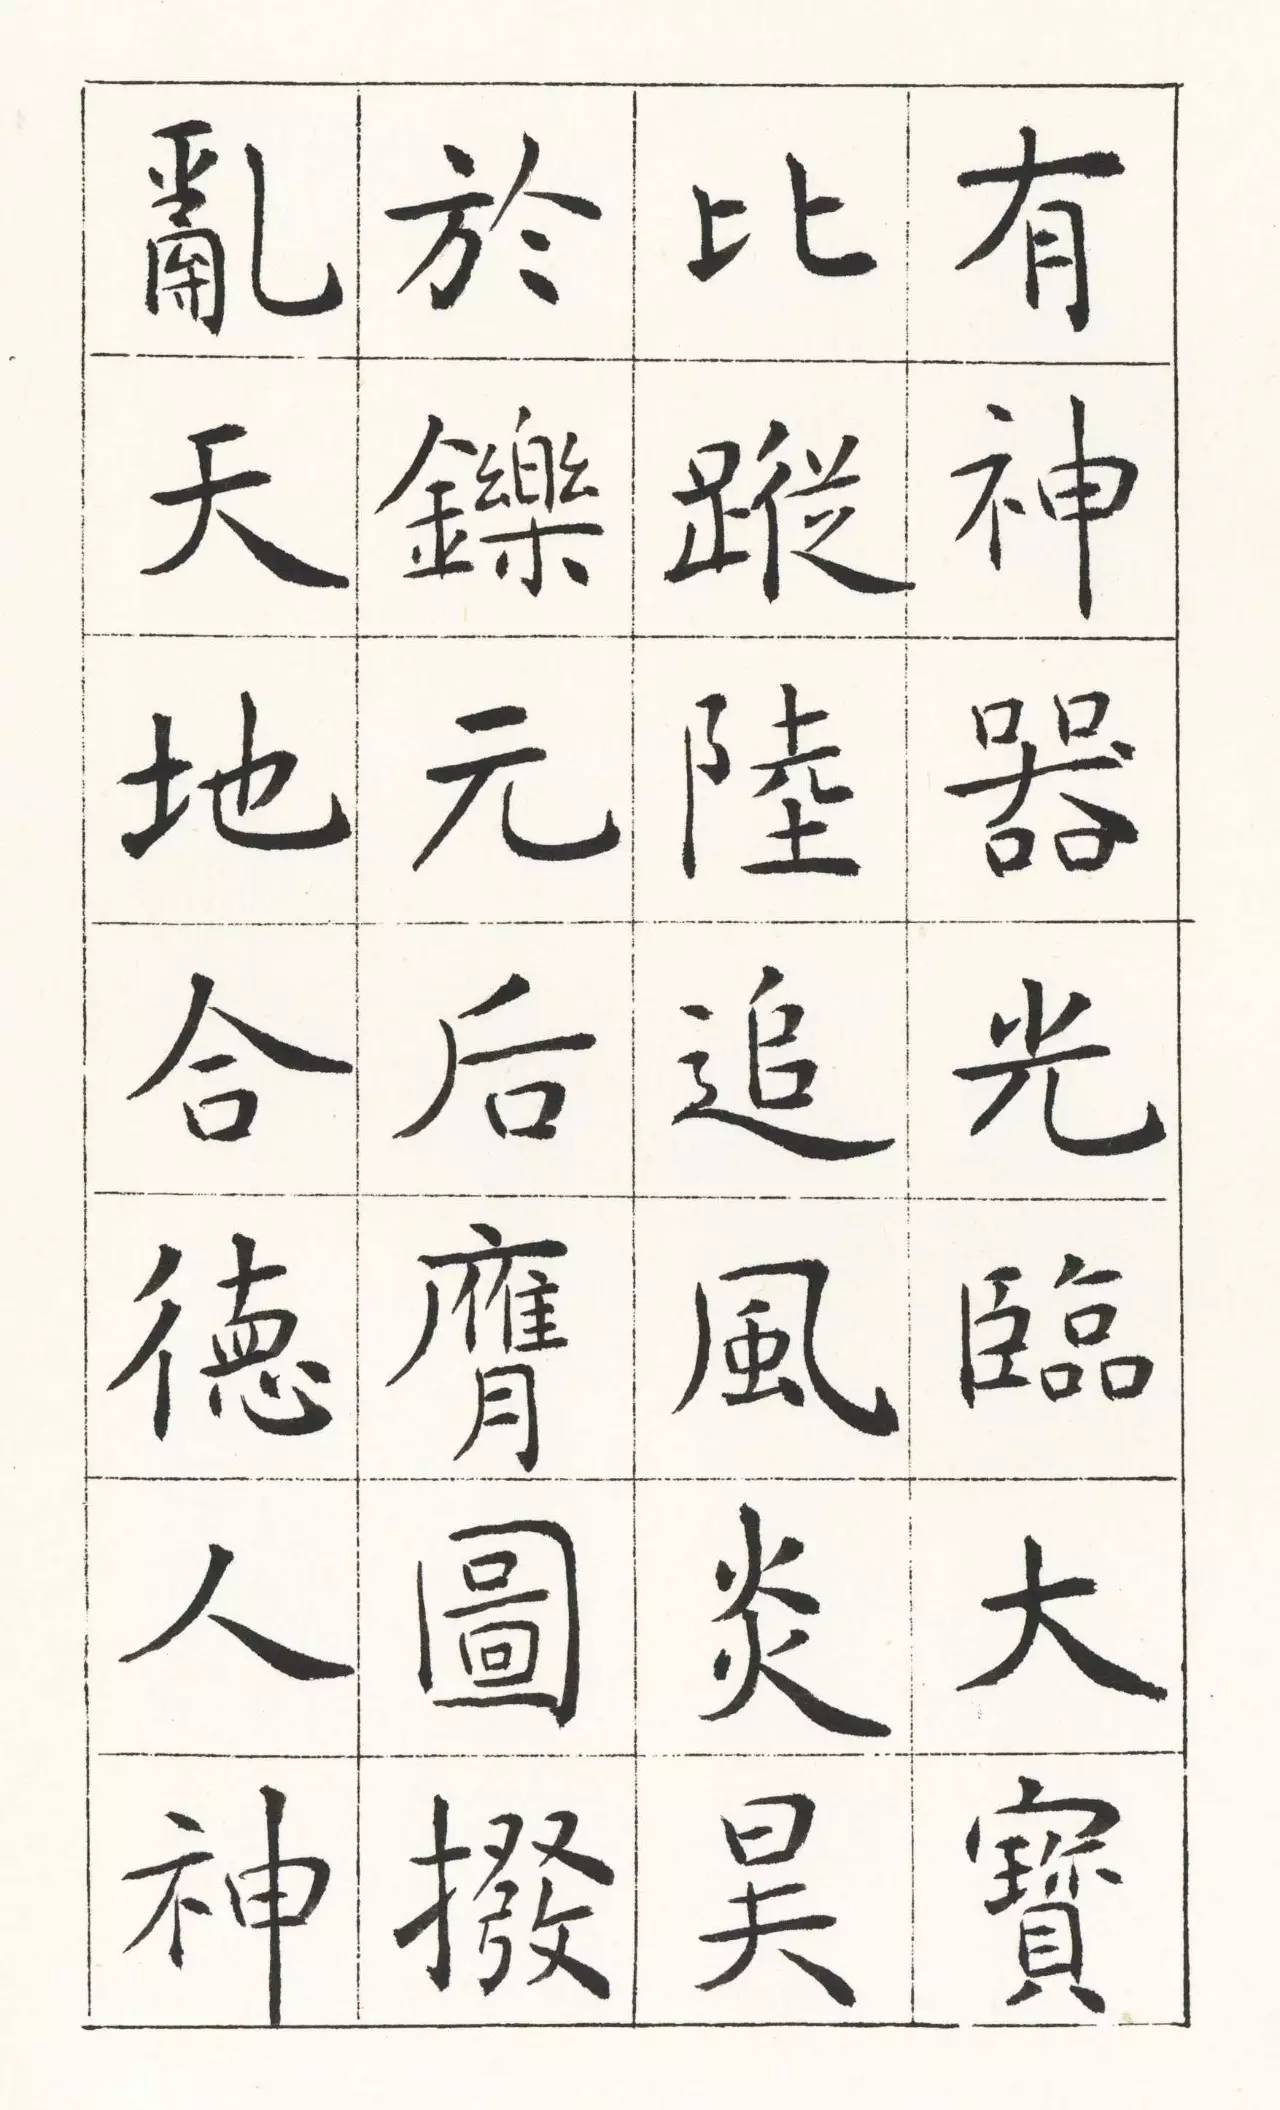 有神器光臨大寶
比蹤陸追風炎昊
於鑠元后膺圖撥
亂天地合德人神